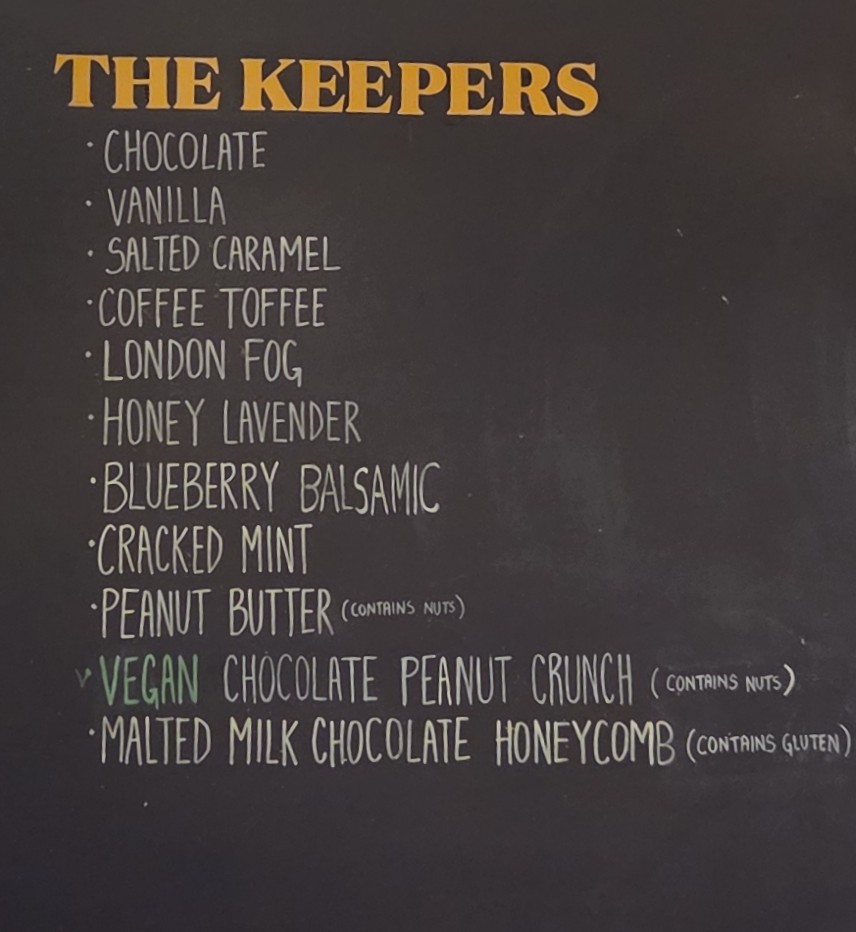 THE KEEPERS
· CHOCOLATE
· VANILLA
· SALTED CARAMEL
· COFFEE TOFFEE
· LONDON FOG
· HONEY LAVENDER
· BLUEBERRY BALSAMIC
· CRACKED MINT
· PEANUT BUTTER (CONTAINS NUTS)
v VEGAN CHOCOLATE PEANUT CRUNCH (CONTAINS NUTS)
· MALTED MILK CHOCOLATE HONEYCOMB (CONTAINS GLUTEN)